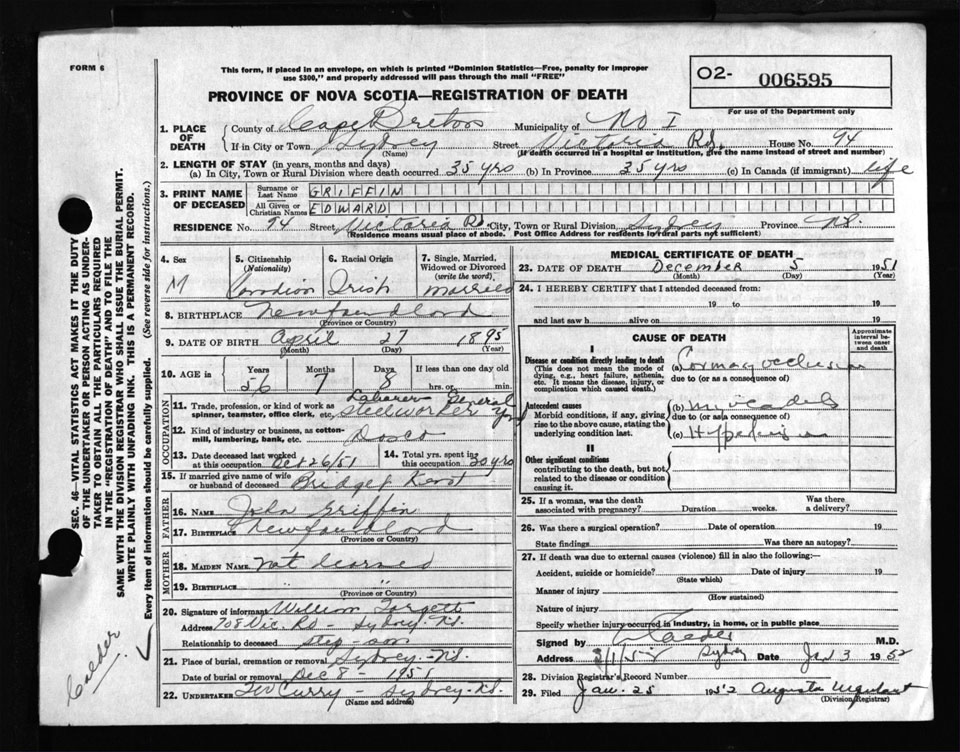 FORM 6
This form, if placed in an envelope, on which is printed "Dominion Statistics—Free, penalty for improper
use $300," and properly addressed will pass through the mail "FREE"
O2- 006595
For use of the Department only
PROVINCE OF NOVA SCOTIA—REGISTRATION OF DEATH
1. PLACE OF DEATH
County of Cape Breton Municipality of No I
If in City or Town Sydney Street Victoria Rd. House No. 94
(Name) (If death occurred in a hospital or institution, give the name instead of street and number)
2. LENGTH OF STAY (in years, months and days)
(a) In City, Town or Rural Division where death occurred 35 yrs (b) In Province 35 yrs (c) In Canada (if immigrant) life
3. PRINT NAME OF DECEASED
Surname or Last Name GRIFFIN
All Given or Christian Names EDWARD
RESIDENCE No. 94 Street Victoria Rd. City, Town or Rural Division Sydney Province N.S.
(Residence means usual place of abode. Post Office Address for residents in rural parts not sufficient)
4. Sex
M
5. Citizenship
(Nationality)
Canadian
6. Racial Origin
Irish
7. Single, Married,
Widowed or Divorced
(write the word)
Married
8. BIRTHPLACE Newfoundland
(Province or Country)
9. DATE OF BIRTH April 27 1895
(Month) (Day) (Year)
10. AGE in Years Months Days If less than one day
56 7 8 hrs. or min.
OCCUPATION
11. Trade, profession, or kind of work as
spinner, teamster, office clerk, etc. Laborer General Yard
Steelworker
12. Kind of industry or business, as cotton-
mill, lumbering, bank, etc. Dosco
13. Date deceased last worked
at this occupation Oct 26/51
14. Total yrs. spent in
this occupation 30 yrs
15. If married give name of wife
or husband of deceased Bridget
FATHER
16. Name John Griffin
17. Birthplace Newfoundland
(Province or Country)
MOTHER
18. MAIDEN NAME Not learned
19. BIRTHPLACE " "
(Province or Country)
20. Signature of informant William Targett
Address 708 Vic. Rd - Sydney N.S.
Relationship to deceased step-son
21. Place of burial, cremation or removal Sydney N.S.
Date of burial or removal Dec 8 - 1951
22. UNDERTAKER Curry - Sydney N.S.
(Name and address)
MEDICAL CERTIFICATE OF DEATH
23. DATE OF DEATH December 5 1951
(Month) (Day) (Year)
24. I HEREBY CERTIFY that I attended deceased from:
19 to 19
and last saw h alive on 19
CAUSE OF DEATH
Approximate interval between onset and death
I
Disease or condition directly leading to death
(This does not mean the mode of
dying, e.g., heart failure, asthenia,
etc. It means the disease, injury, or
complication which caused death.)
(a) Coronary occlusion
due to (or as a consequence of)
Antecedent causes
Morbid conditions, if any, giving
rise to the above cause, stating the
underlying condition last.
(b)
due to (or as a consequence of)
(c) Hypertension
II
Other significant conditions
contributing to the death, but not
related to the disease or condition
causing it.
25. If a woman, was the death
associated with pregnancy? Duration weeks. Was there
a delivery?
26. Was there a surgical operation? Date of operation 19
State findings Was there an autopsy?
27. If death was due to external causes (violence) fill in also the following:—
Accident, suicide or homicide? Date of injury 19
(State which)
Manner of injury
(How sustained)
Nature of injury
Specify whether injury occurred in industry, in home, or in public place
Signed by Calder M.D.
Address Sydney Date Jan 3 1952
28. Division Registrar's Record Number
29. Filed Jan. 25 1952 Augusta Urquhart
(Division Registrar)
SEC. 46—VITAL STATISTICS ACT MAKES IT THE DUTY
OF THE UNDERTAKER OR PERSON ACTING AS UNDER-
TAKER TO OBTAIN ALL THE PARTICULARS REQUIRED
IN THE "REGISTRATION OF DEATH" AND TO FILE THE
SAME WITH THE DIVISION REGISTRAR WHO SHALL ISSUE THE BURIAL PERMIT.
WRITE PLAINLY WITH UNFADING INK. THIS IS A PERMANENT RECORD.
Every item of information should be carefully supplied. (See reverse side for instructions.)
Calder